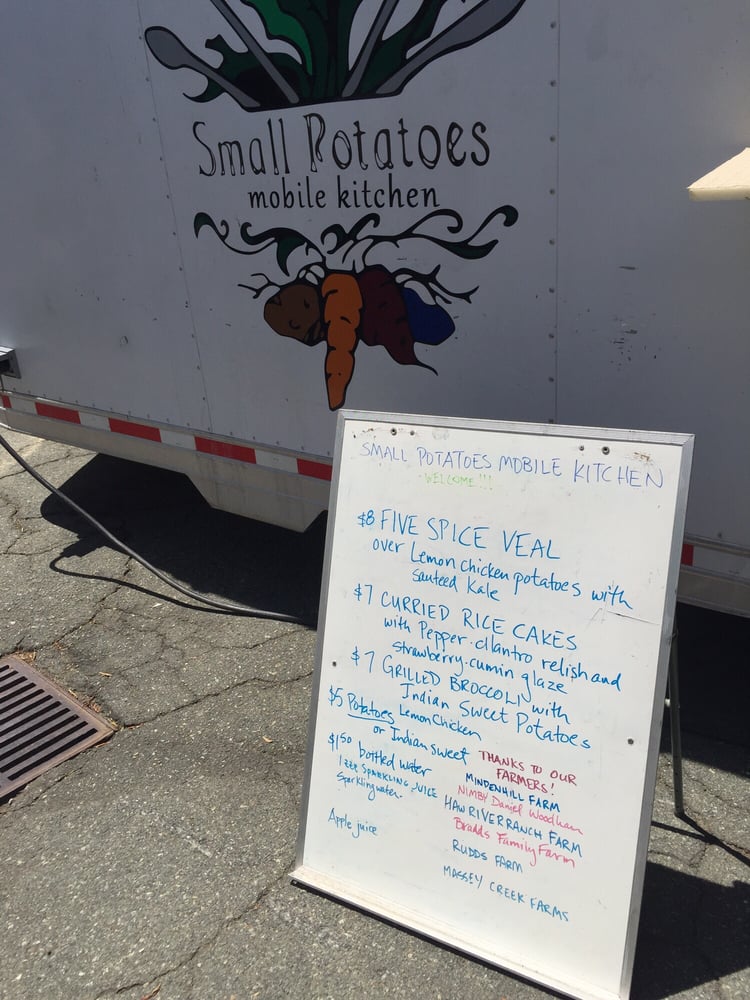 Small Potatoes
mobile kitchen
SMALL POTATOES MOBILE KITCHEN
WELCOME!!!
$8 FIVE SPICE VEAL
over Lemon chicken potatoes with
sauteed Kale
$7 CURRIED RICE CAKES
with Pepper-cilantro relish and
strawberry-cumin glaze
$7 GRILLED BROCCOLI with
Indian Sweet Potatoes
$5 Potatoes Lemon Chicken
or Indian sweet
$1.50 bottled water
IZZE SPARKLING JUICE
Sparkling water
Apple juice
THANKS TO OUR
FARMERS!
MINDENHILL FARM
NIMBY Daniel Woodham
HAW RIVER RANCH FARM
Bradds Family Farm
RUDDS FARM
MASSEY CREEK FARMS